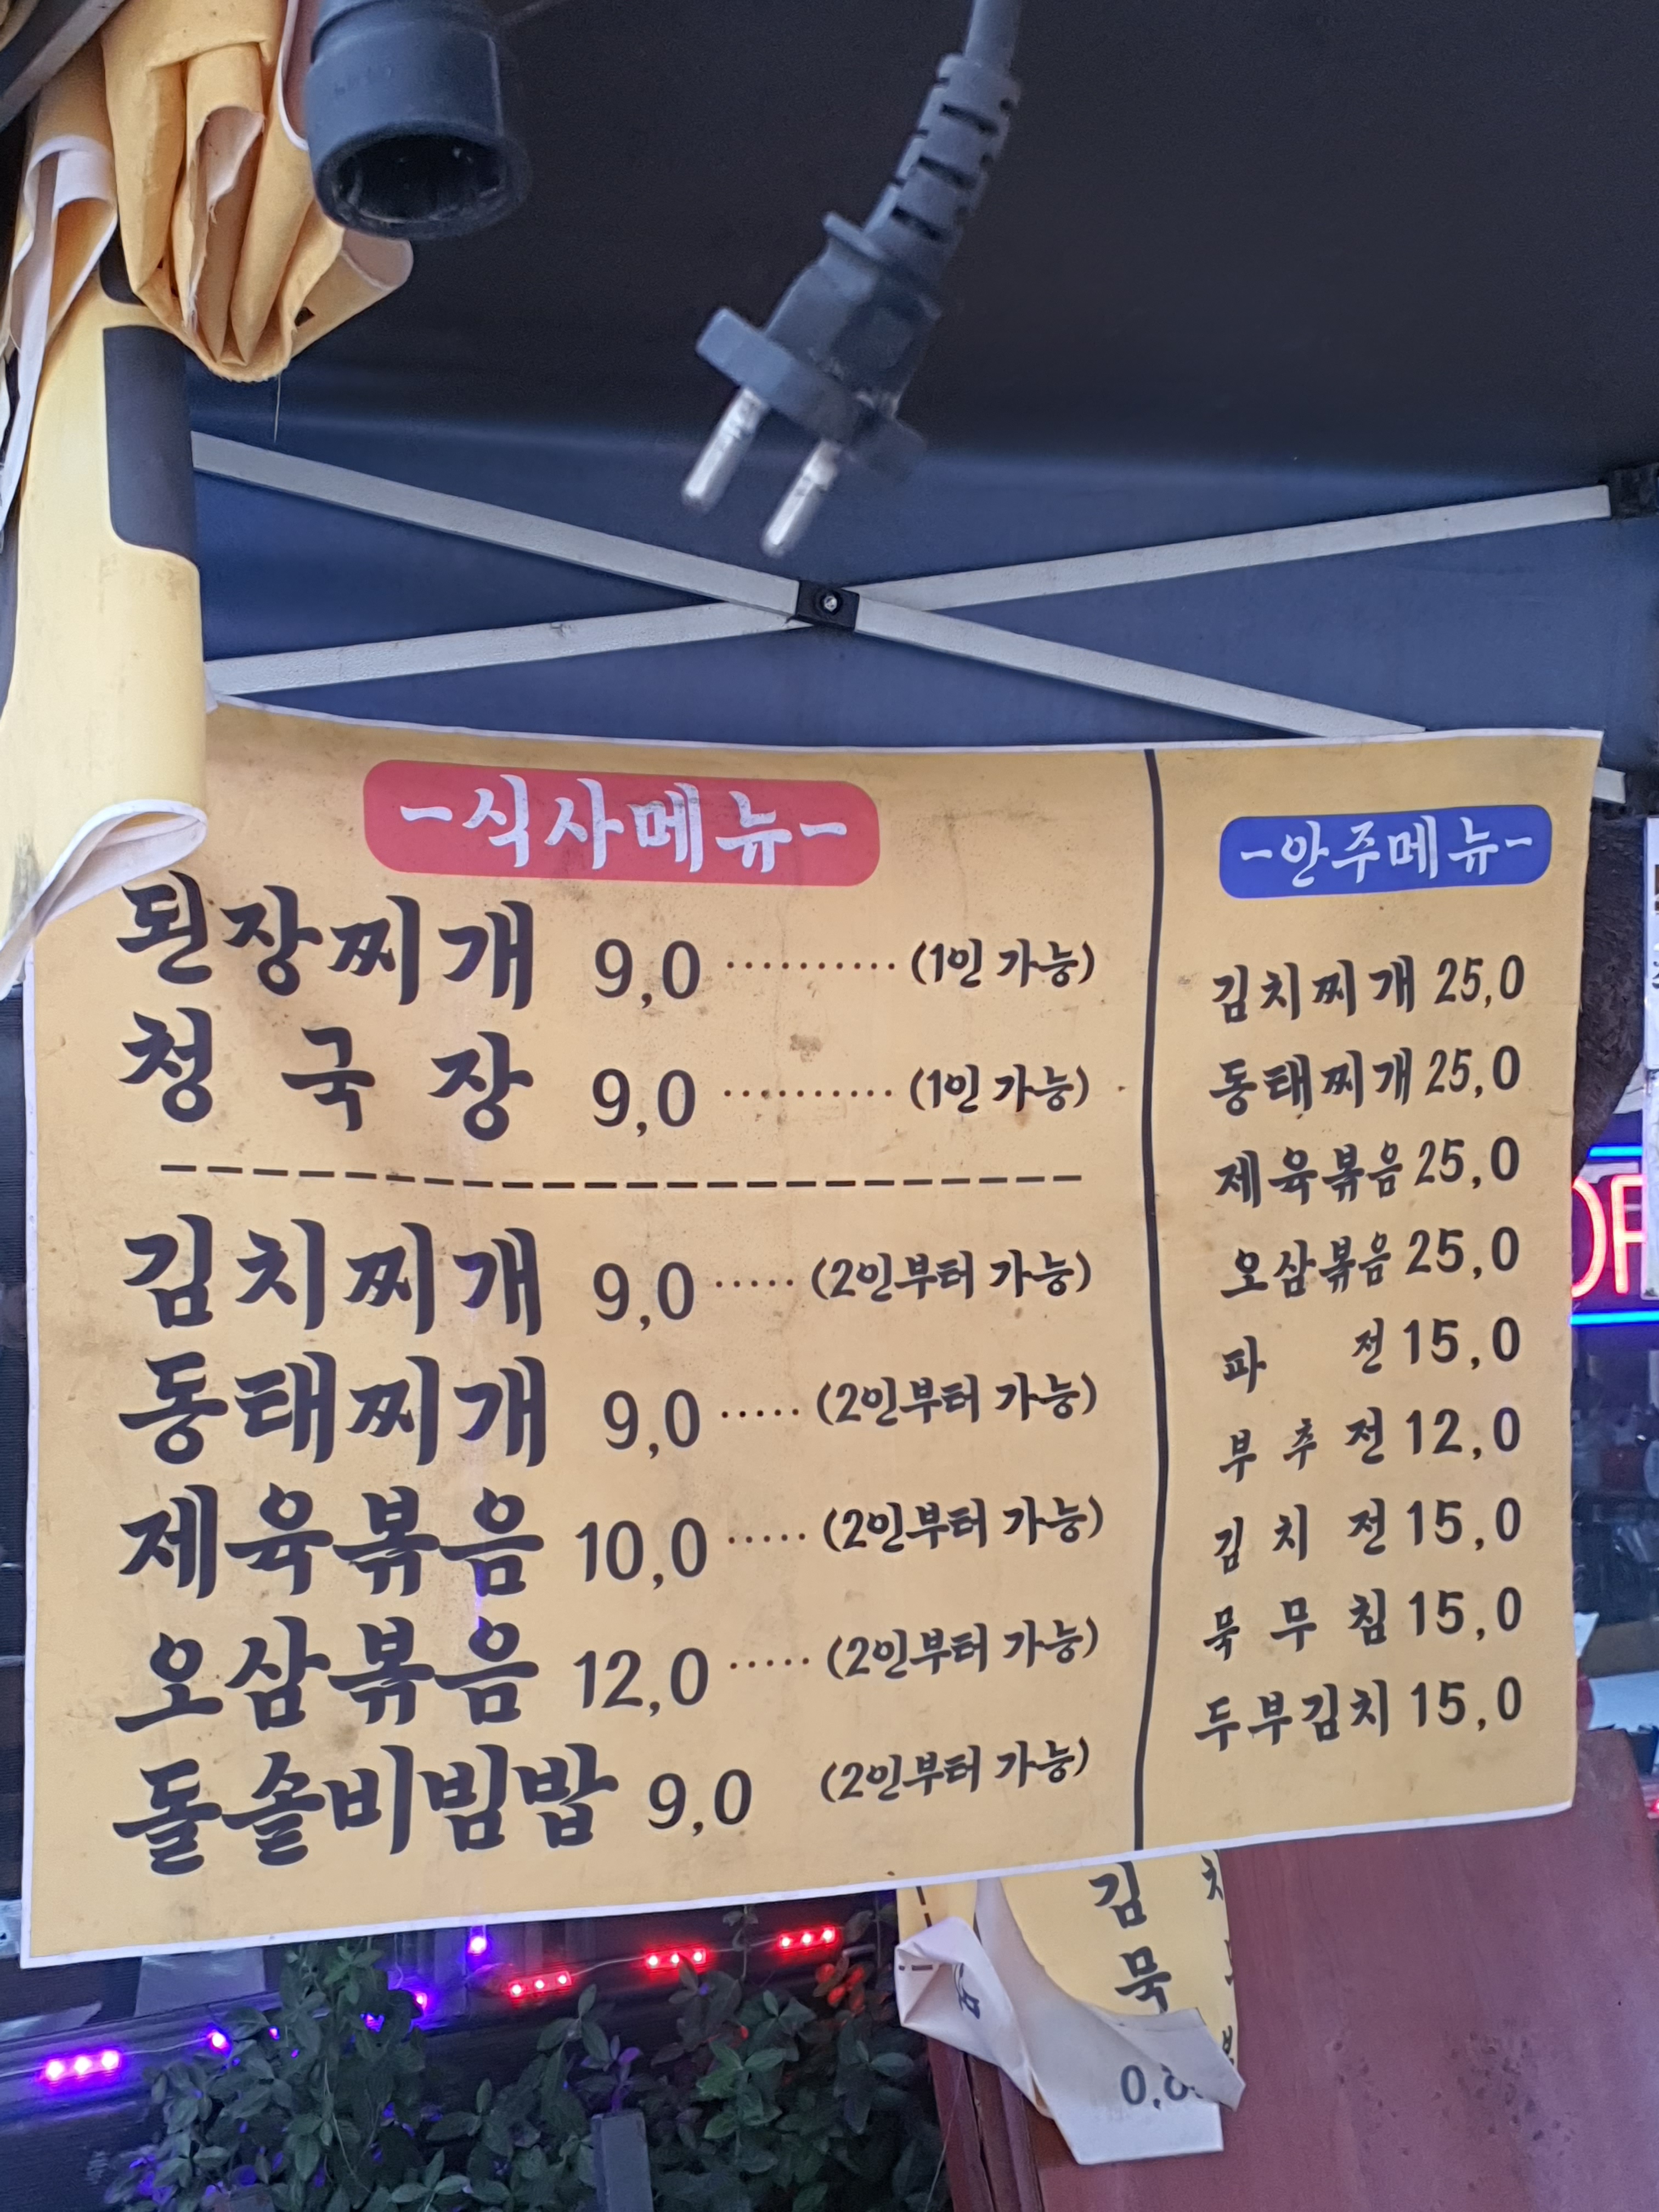 -식사메뉴-
된장찌개 9,0 ·········· (1인 가능)
청 국 장 9,0 ·········· (1인 가능)
김치찌개 9,0 ····· (2인부터 가능)
동태찌개 9,0 ····· (2인부터 가능)
제육볶음 10,0 ····· (2인부터 가능)
오삼볶음 12,0 ····· (2인부터 가능)
돌솥비빔밥 9,0 (2인부터 가능)
-안주메뉴-
김치찌개 25,0
동태찌개 25,0
제육볶음 25,0
오삼볶음 25,0
파 전 15,0
부 추 전 12,0
김 치 전 15,0
묵 무 침 15,0
두부김치 15,0
김
묵